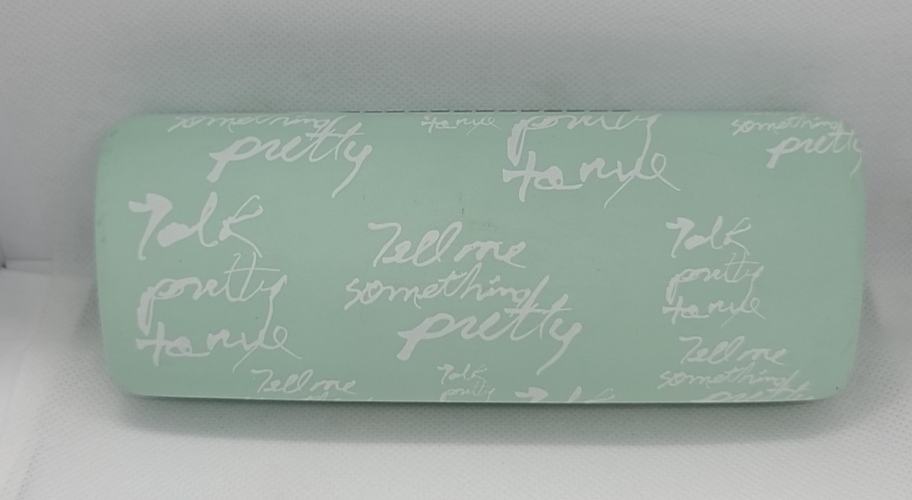 something
pretty
to me
pretty
to me
something
pretty
Talk
pretty
to me
Tell me
something
pretty
Talk
pretty
to me
Tell me
something
pretty
Tell me
Talk
pretty
Talk